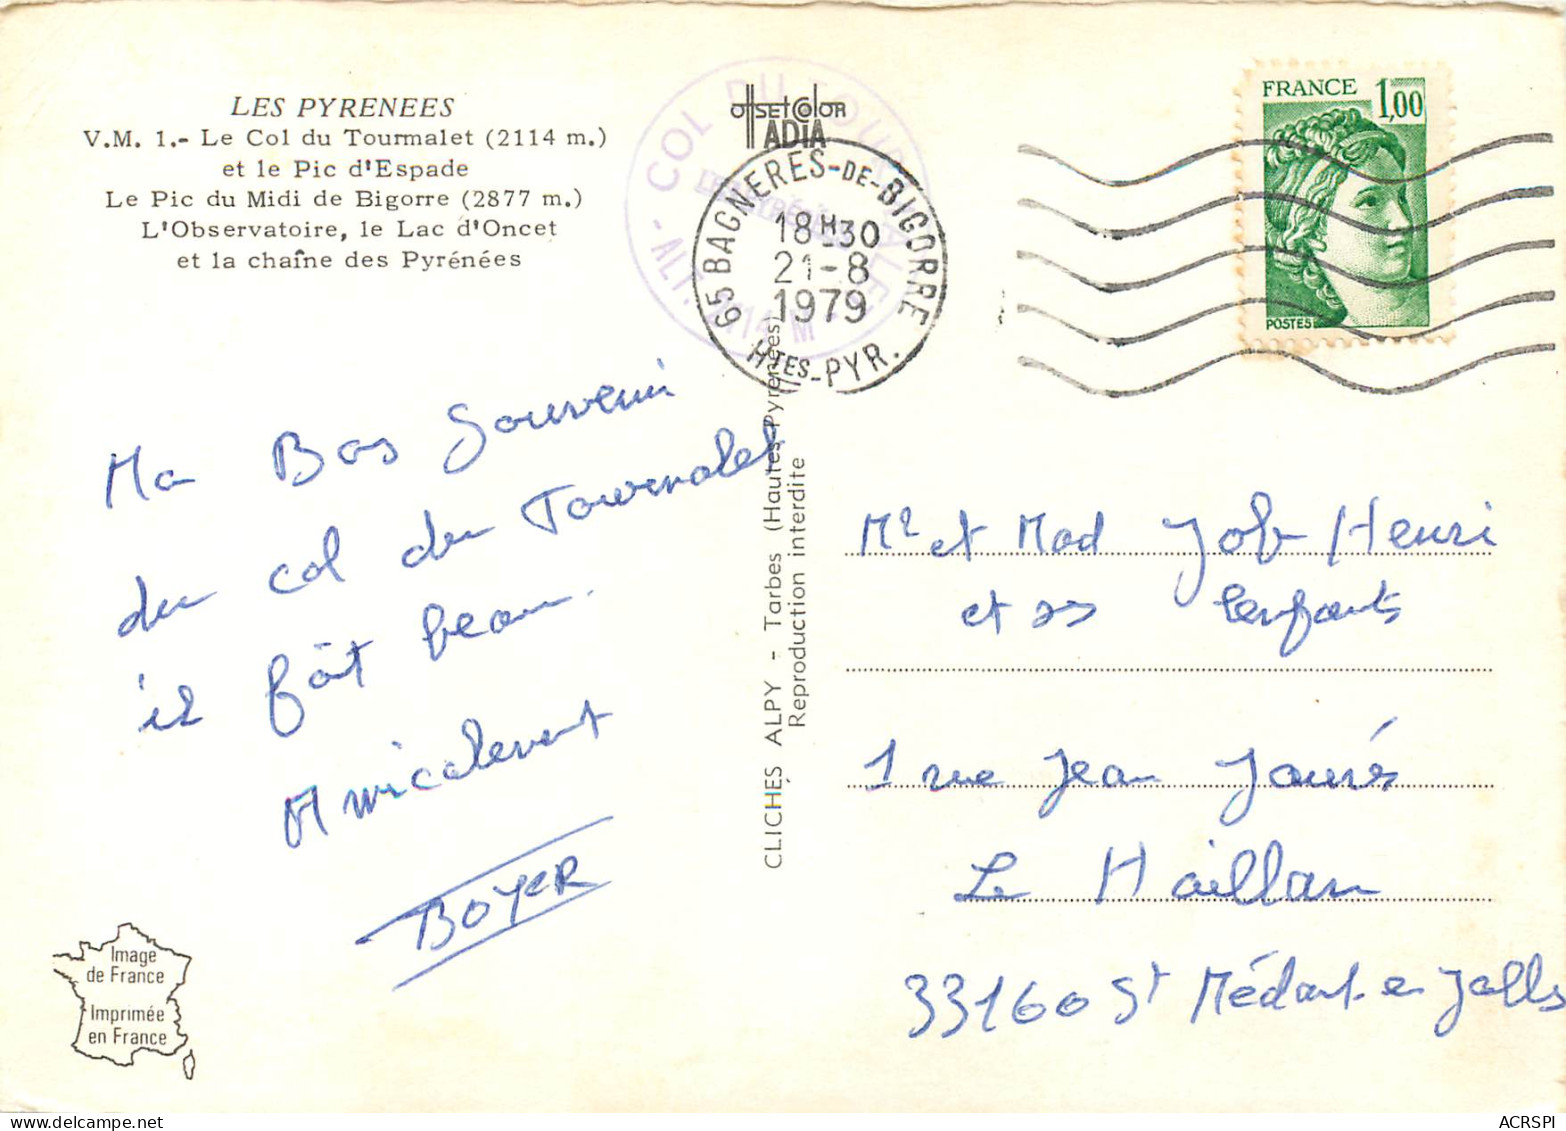 LES PYRENEES
V.M. 1.- Le Col du Tourmalet (2114 m.)
et le Pic d'Espade
Le Pic du Midi de Bigorre (2877 m.)
L'Observatoire, le Lac d'Oncet
et la chaîne des Pyrénées
OffsetColor
ADIA
COL DU TOURMALET
- ALT. 2114 M -
65 BAGNERES-DE-BIGORRE
18H30
21-8
1979
HTES-PYR.
FRANCE 1,00
POSTES
Ma Bos Souvenir
du col du Tourmalet
il fôit beau.
Amicalement
BOYER
CLICHÉS ALPY - Tarbes (Hautes-Pyrénées)
Reproduction interdite
Mr et Mad Job Henri
et ses enfants
1 rue Jean Jaurés
Le Haillan
33160 St Médart-en Jalls
Image
de France
Imprimée
en France
ACRSPI